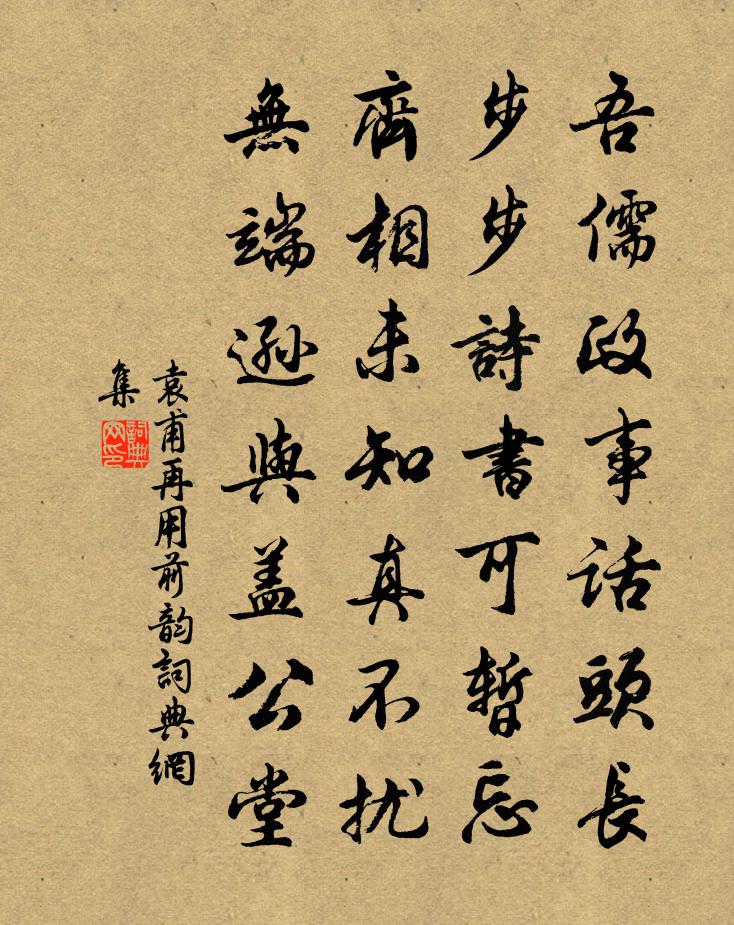 吾儒政事話頭長
步步詩書可暫忘
齊相未知真不扰
無端遜與盖公堂
袁甫再用前韵詞典網
集
詞典
网印